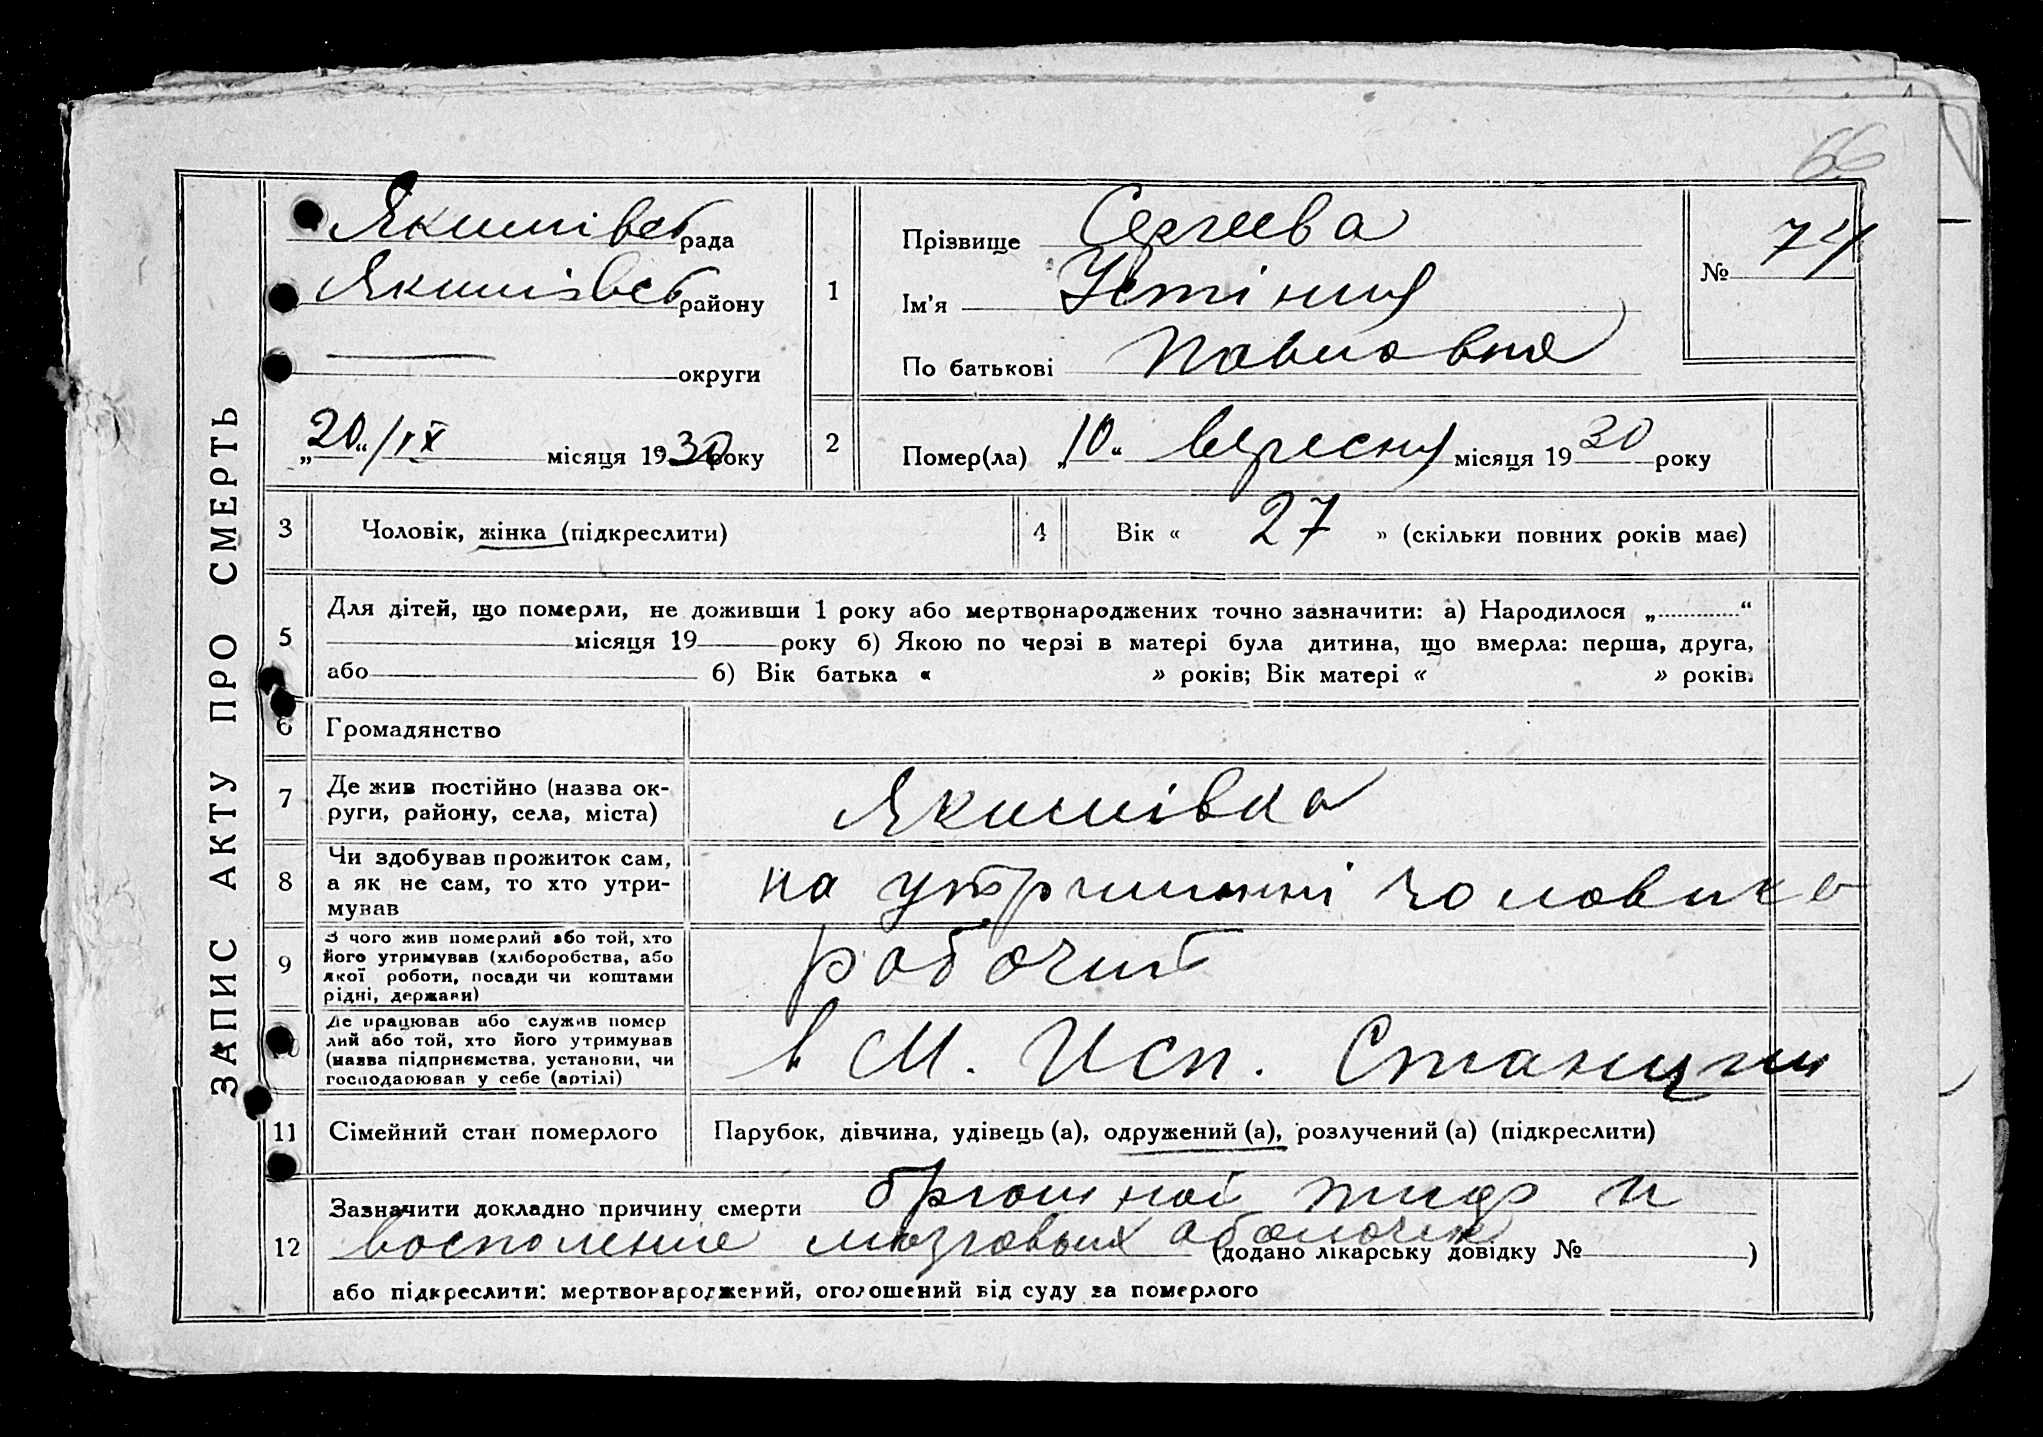 66
ЗАПИС АКТУ ПРО СМЕРТЬ
Якимівсь рада
Якимівсь району
округи
„20“/IX місяця 1930 року
1 Прізвище Сергеева
Ім'я Устіния
По батькові Павловна
№ 74
2 Помер(ла) „10“ вересня місяця 1930 року
3 Чоловік, жінка (підкреслити)
4 Вік « 27 » (скільки повних років має)
5 Для дітей, що померли, не доживши 1 року або мертвонароджених точно зазначити: а) Народилося „ “
місяця 19 року б) Якою по черзі в матері була дитина, що вмерла: перша, друга,
або б) Вік батька « » років; Вік матері « » років.
6 Громадянство
7 Де жив постійно (назва ок-
руги, району, села, міста)
Якимівка
8 Чи здобував прожиток сам,
а як не сам, то хто утри-
мував
на утриманні чоловика
9 З чого жив померлий або той, хто
його утримував (хліборобства, або
якої роботи, посади чи коштами
рідні, держави)
рабочий
Де працював або служив помер
лий або той, хто його утримував
(назва підприємства, установи, чи
господарював у себе (артілі)
в М. Исп. Станции
11 Сімейний стан померлого
Парубок, дівчина, удівець (а), одружений (а), розлучений (а) (підкреслити)
12 Зазначити докладно причину смерти брюшной тиф и
воспаление мозговых оболочек (додано лікарську довідку № )
або підкреслити: мертвонароджений, оголошений від суду за померлого